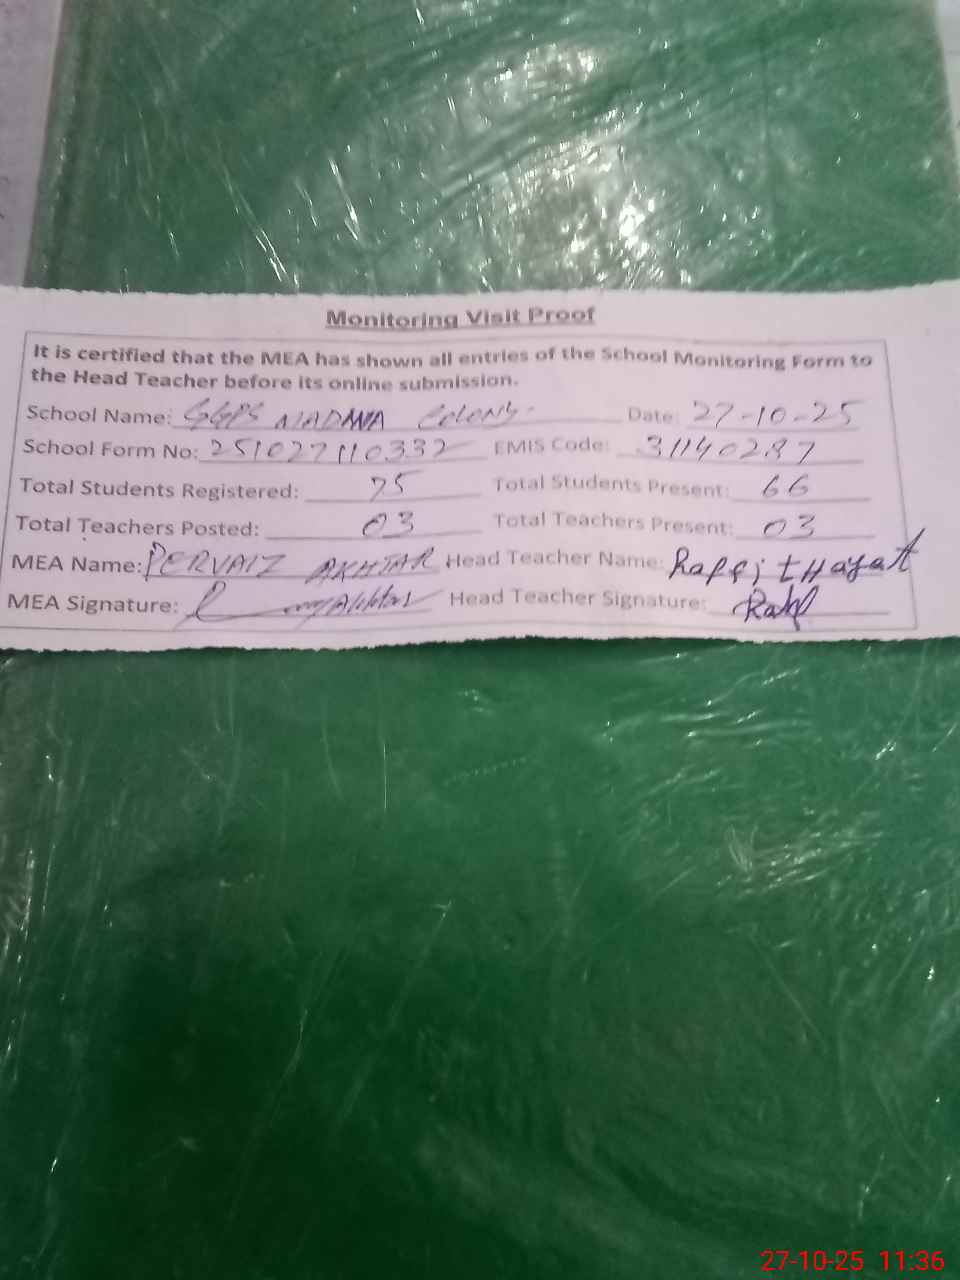 Monitoring Visit Proof
It is certified that the MEA has shown all entries of the School Monitoring Form to
the Head Teacher before its online submission.
School Name: GGPS MADINA COLONY Date: 27-10-25
School Form No: 251027110332 EMIS Code: 31140287
Total Students Registered: 75 Total Students Present: 66
Total Teachers Posted: 03 Total Teachers Present: 03
MEA Name: PERVAIZ AKHTAR Head Teacher Name: Hayat
MEA Signature: Head Teacher Signature:
27-10-25 11:36